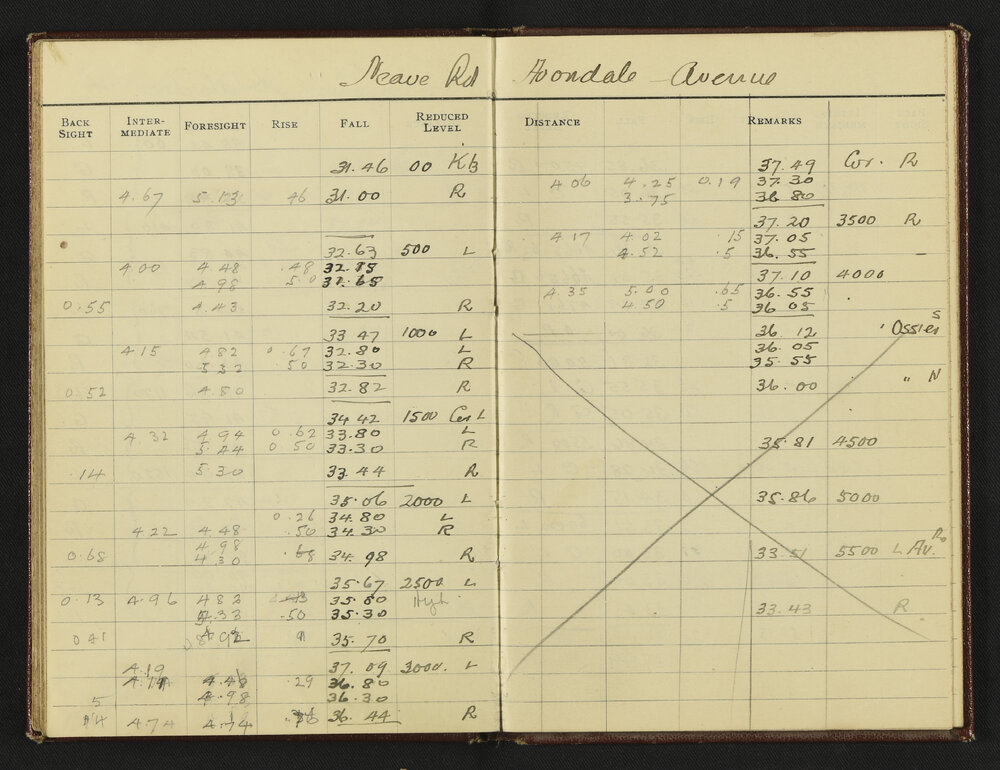 Neave Rd Avondale Avenue
BACK SIGHT INTER-MEDIATE FORESIGHT RISE FALL REDUCED LEVEL DISTANCE REMARKS
31.46 00 Kb
4.67 5.13 46 31.00 R
32.63 500 L
4.00 4.48 .48
4.98 5.0
0.55 4.43 32.20 R
33 47 1000 L
4.15 4.82 0.67 32.80 L
5.32 .50 32.30 R
0.52 4.80 32.82 R
34 42 1500 Cen L
4.32 4.94 0.62 33.80 L
5.44 0.50 33.30 R
.14 5.30 33.44 R
35.06 2000 L
0.26 34.80 L
4.22 4.48 .50 34.30 R
4.98
0.68 4.30 .68 34.98 R
35.67 2500 L
0.13 4.96 4.83 35.80 High
5.33 .50 35.30
0 41 35.70 R
37.09 3000. L
4.19
4.48 .29 36.80
4.98 36.30
5
14 4.74 4.74 36.44 R
37.49 Cor. R
4.06 4.25 0.19 37.30
3.75 36 80
37.20 3500 R
4.17 4.02 .15 37.05
4.52 .5 36.55
37.10 4000
4.35 5.00 .65 36.55
4.50 .5 36 05
36.12 Ossies S
36.05
35.55
36.00 " N
35.81 4500
35.86 5000
33.51 5500 L Av. Rd
33.43 R